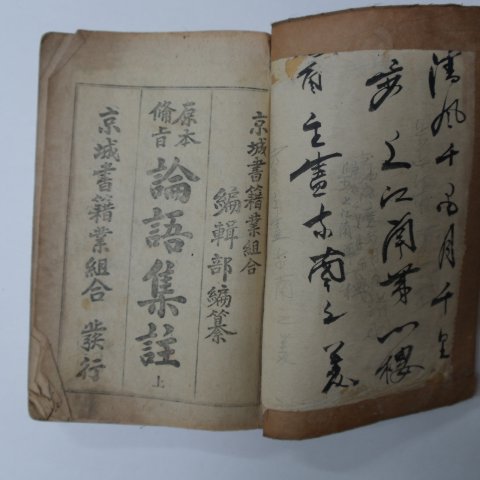 清風千 月千里
上江南第一樓
主盡東南之美
京城書籍業組合
編輯部編纂
原本
備旨
論語集註 上
京城書籍業組合 發行